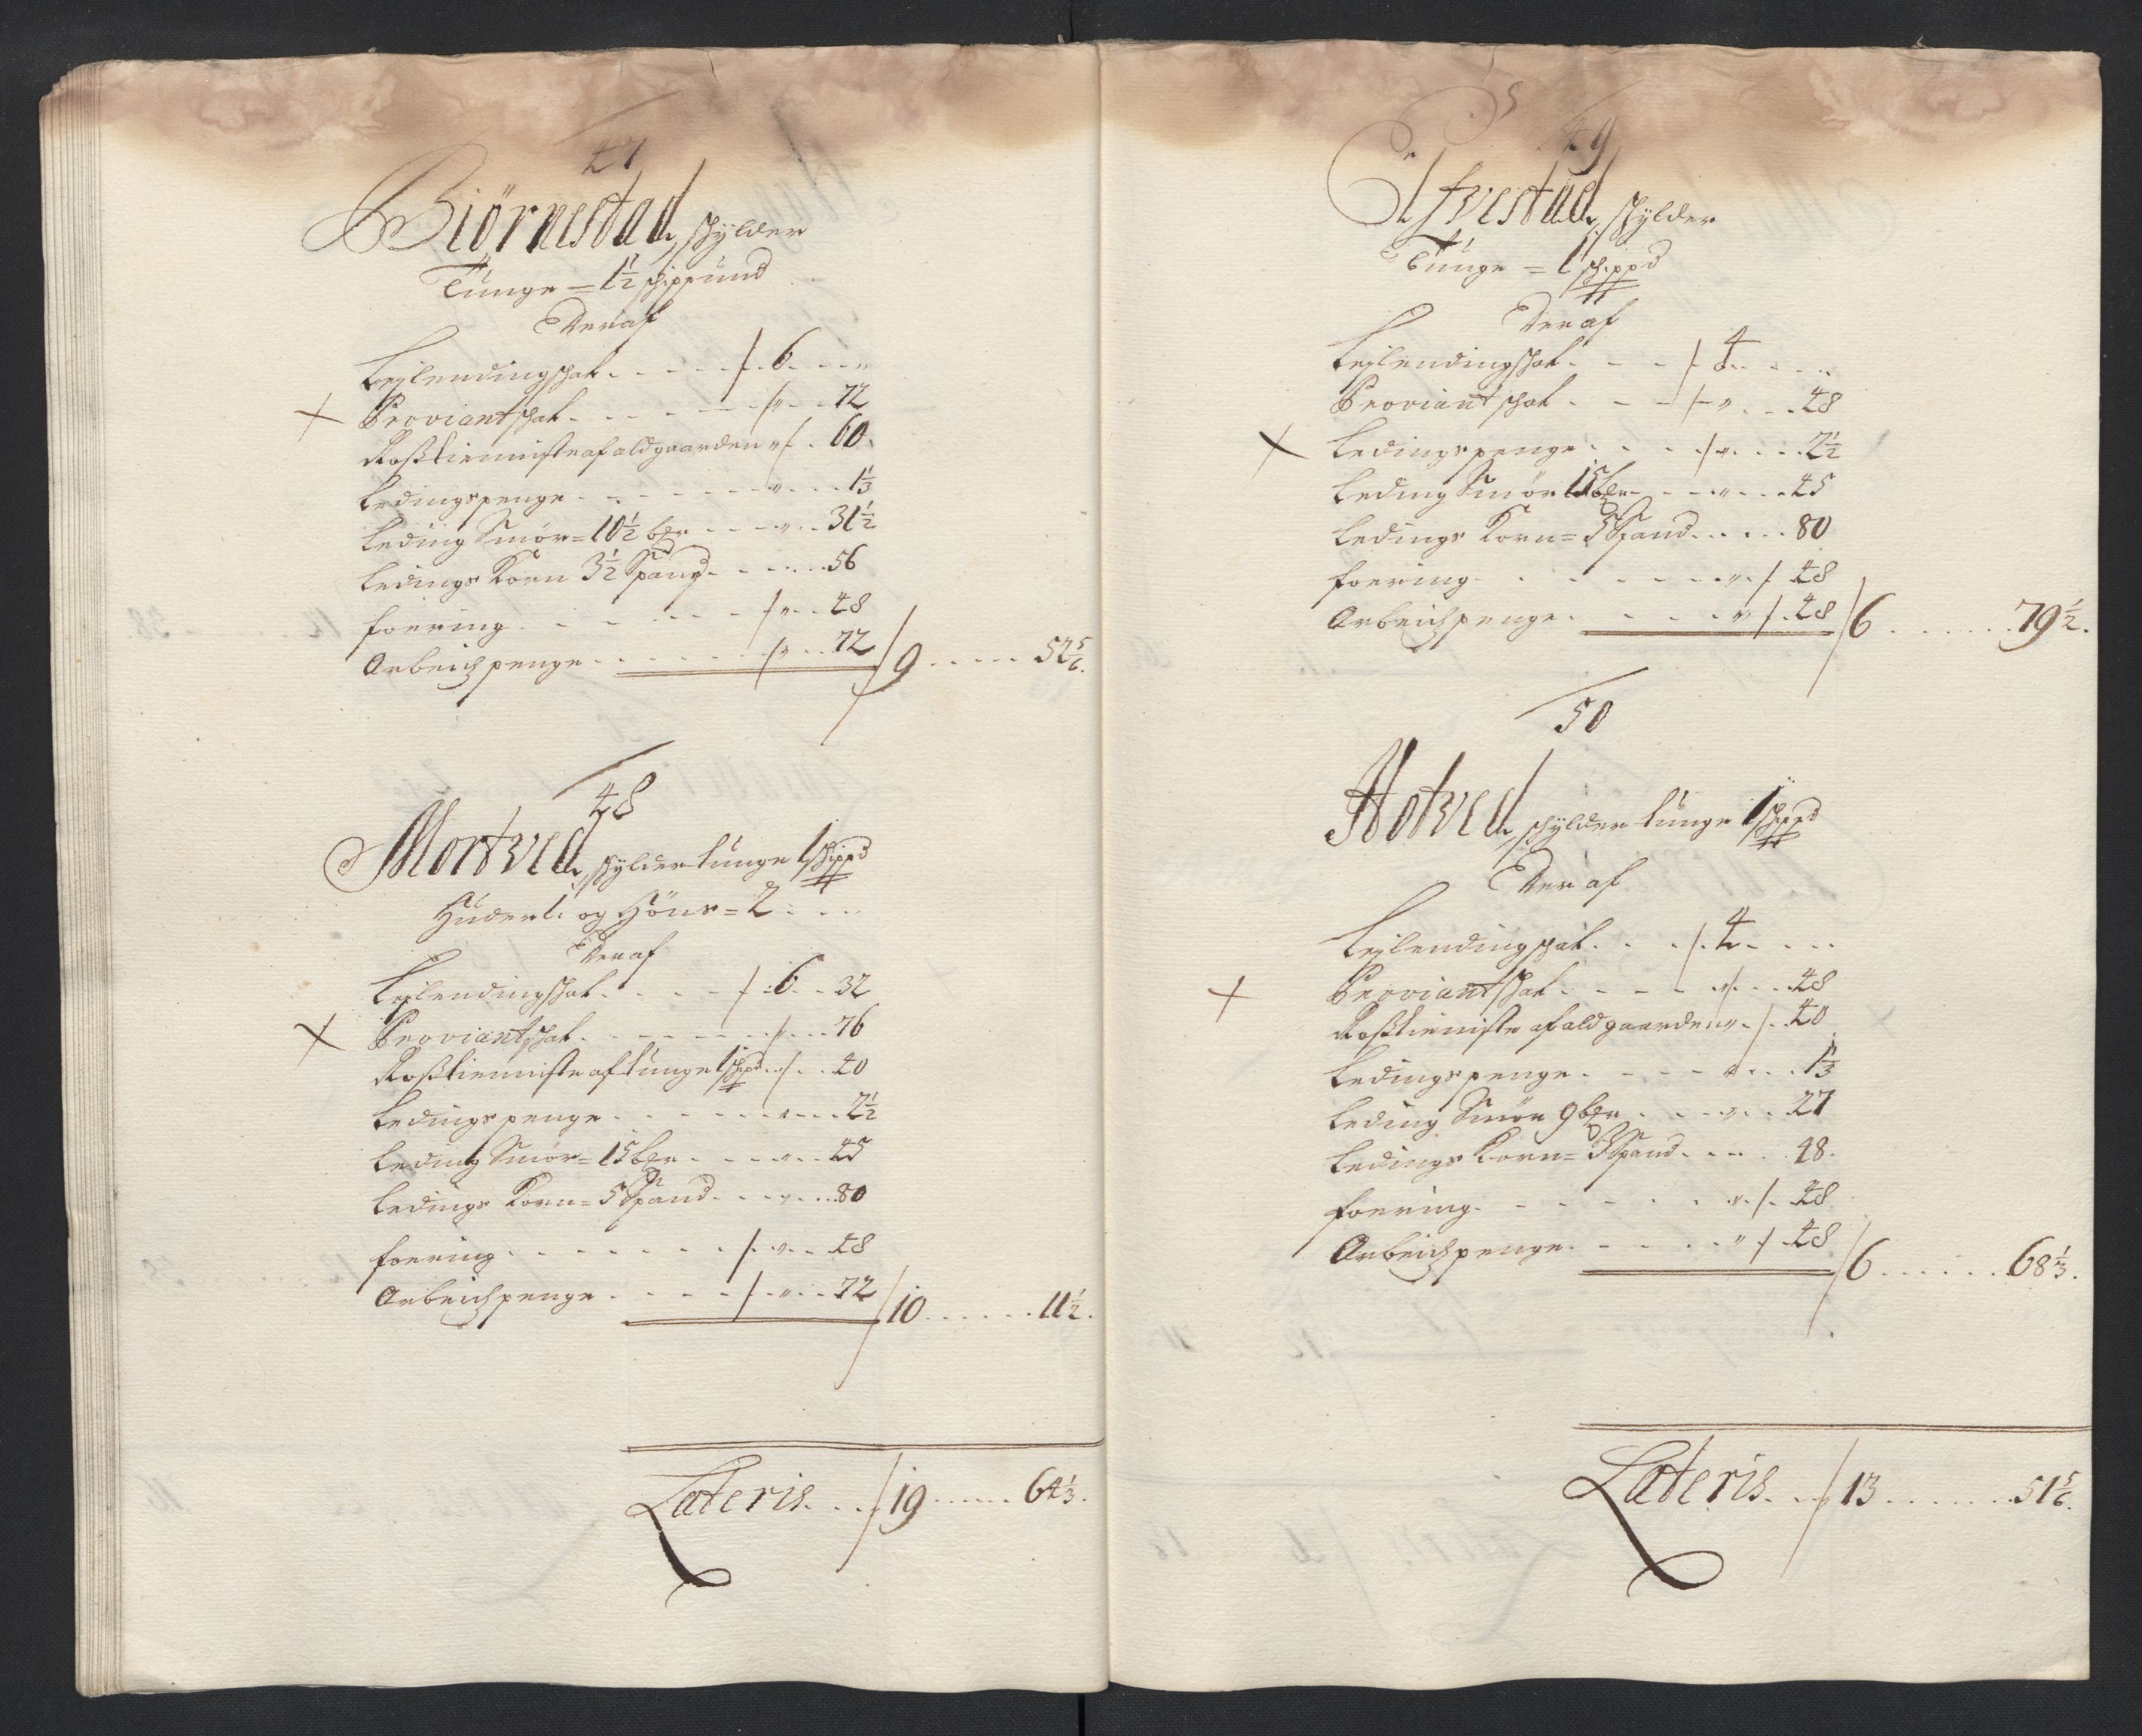 47
Biörnestad, schylder
Tunge = 1½ schippund
Der af
Leylendingschat . . . . . 6 . . . "
Proviantschat . . . . . " . . 72
Rosstienniste af aldgaarden " . 60
Ledingspenge . . . . . . " . . . 1⅓
Leding Smör = 10½ bpr . . . " . . 31½
Ledings Korn 3½ Spand . . . . . 56
Foering . . . . . " . . 48
Arbeidspenge . . . . . . " . . 72 / 9 . . . . . 52⅚.
48
Mortved, schylder tunge 1 schippd
Huder 1. og Höns = 2 . . .
Der af
Leylendingschat . . . . . 6 . . 32
Proviantschat . . . . . . . . . 76
Rosstienniste af tunge 1 schipd . . . 40
Ledingspenge . . . . . . . . . 2½
Leding Smör = 15 bpr . . . " . . 45
Ledings Korn = 5 Spand . . . " . . . 80
Foering . . . . . . . . " . . 48
Arbeidspenge . . . . . . " . . 72 / 10 . . . . . . 11½.
Lateris . . . 19 . . . . . . 64⅓.
49
Ifvestad, schylder
Tunge = 1 schippd
Der af
Leylendingschat . . . . 4 . . . . .
Proviant schat . . . . " . . . 48
Ledingspenge . . . . . " . . . . 2½
Leding Smör 15 bpr . . . . " . . . 45
Ledings Korn = 5 Spand . . . . . 80
Foering . . . . . . . . " . 48
Arbeidspenge . . . . . " . 48 / 6 . . . . . . 79½.
50
Hotved, schylder tunge 1 schippd
Der af
Leylendingschat . . . . 4 . . . .
Proviantschat . . . . . " . . . 48
Rosstienniste af aldgaarden " . . 40
Ledingspenge . . . . . " . . . 1⅓
Leding Smör 9 bpr . . . . " . . 27
Ledings Korn = 3 Spand . . . . . 48.
Foering . . . . . . . " . . 48
Arbeidspenge . . . . . " . 48 / 6 . . . . . . 68⅓.
Lateris . . . 13 . . . . . . . 51⅚.